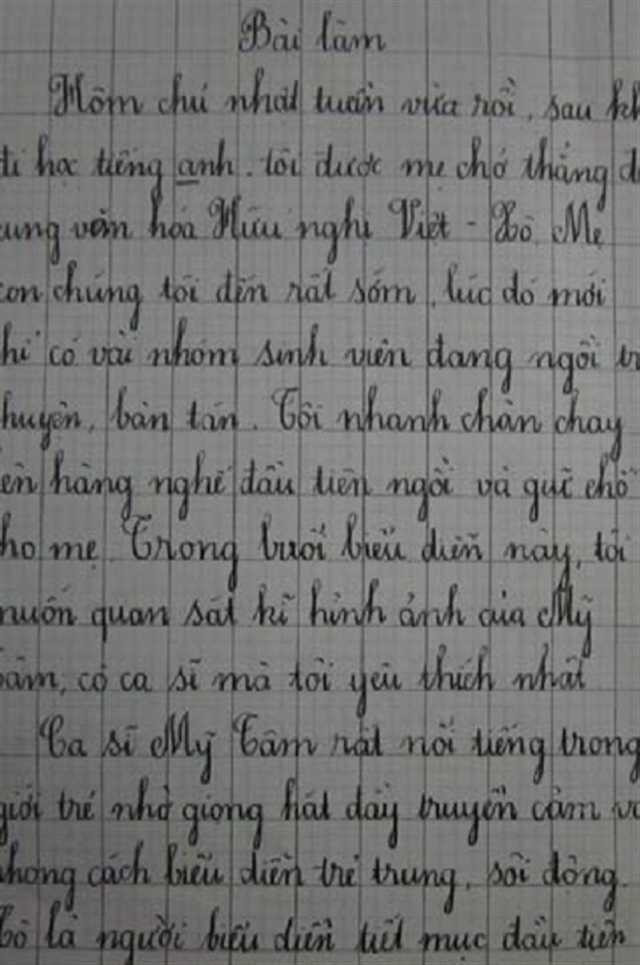 Bài làm
Hôm chủ nhật tuần vừa rồi, sau kh
đi học tiếng anh. tôi được mẹ chở thẳng đ
cung văn hóa Hữu nghị Việt - Xô. Mẹ
con chúng tôi đến rất sớm, lúc đó mới
hỉ có vài nhóm sinh viên đang ngồi tr
huyện, bàn tán. Tôi nhanh chân chạy
ên hàng nghế đầu tiên ngồi và giữ chỗ
ho mẹ. Trong buổi biểu diễn này, tôi
muốn quan sát kĩ hình ảnh của Mỹ
âm, cô ca sĩ mà tôi yêu thích nhất
Ca sĩ Mỹ Tâm rất nổi tiếng trong
giới trẻ nhờ giọng hát đầy truyền cảm v
hong cách biểu diễn trẻ trung, sôi động.
Cô là người biểu diễn tiết mục đầu tiên